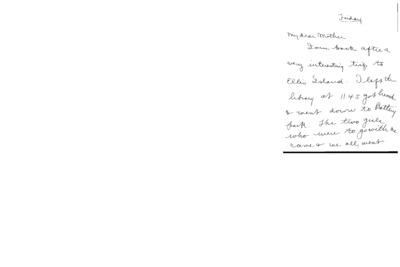 Friday
My dear Mother
I am back after a
very interesting trip to
Ellis Island. I left the
library at 11.45 got lunch
& went down to Battery
Park. The two girls
who were to go with me
came & we all went